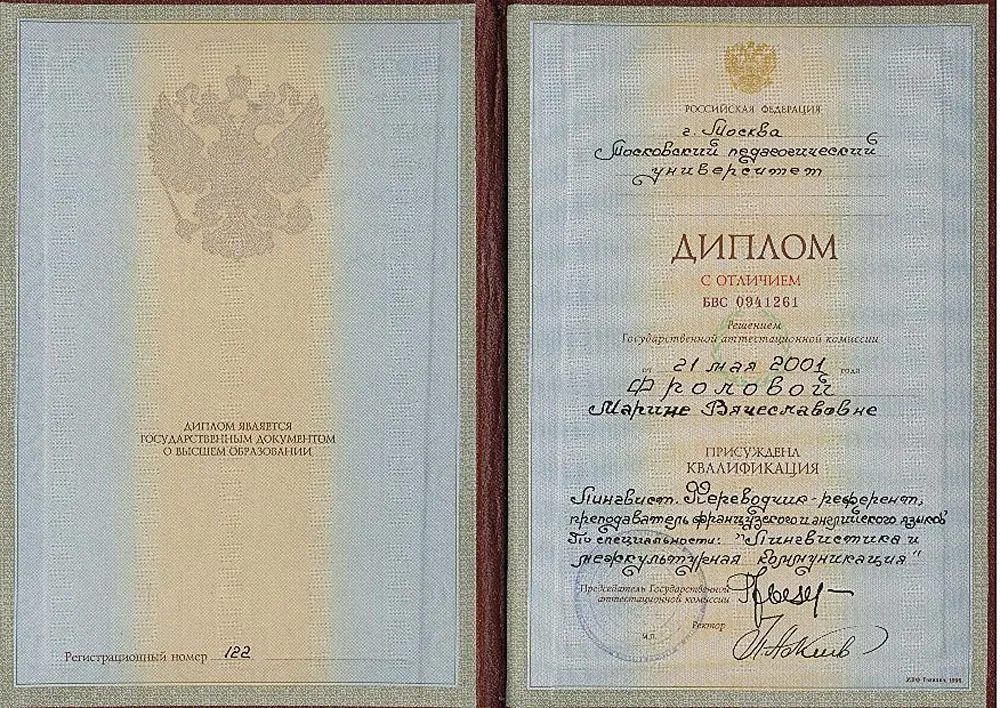 ДИПЛОМ ЯВЛЯЕТСЯ
ГОСУДАРСТВЕННЫМ ДОКУМЕНТОМ
О ВЫСШЕМ ОБРАЗОВАНИИ
Регистрационный номер 122
РОССИЙСКАЯ ФЕДЕРАЦИЯ
г. Москва
Московский педагогический
университет
ДИПЛОМ
С ОТЛИЧИЕМ
БВС 0941261
Решением
Государственной аттестационной комиссии
от 21 мая 2001 года
Фроловой
Марине Вячеславовне
ПРИСУЖДЕНА
КВАЛИФИКАЦИЯ
Лингвист. Переводчик-референт,
преподаватель французского и английского языков
По специальности: "Лингвистика и
межкультурная коммуникация"
Председатель Государственной
аттестационной комиссии
Ректор
М.П.